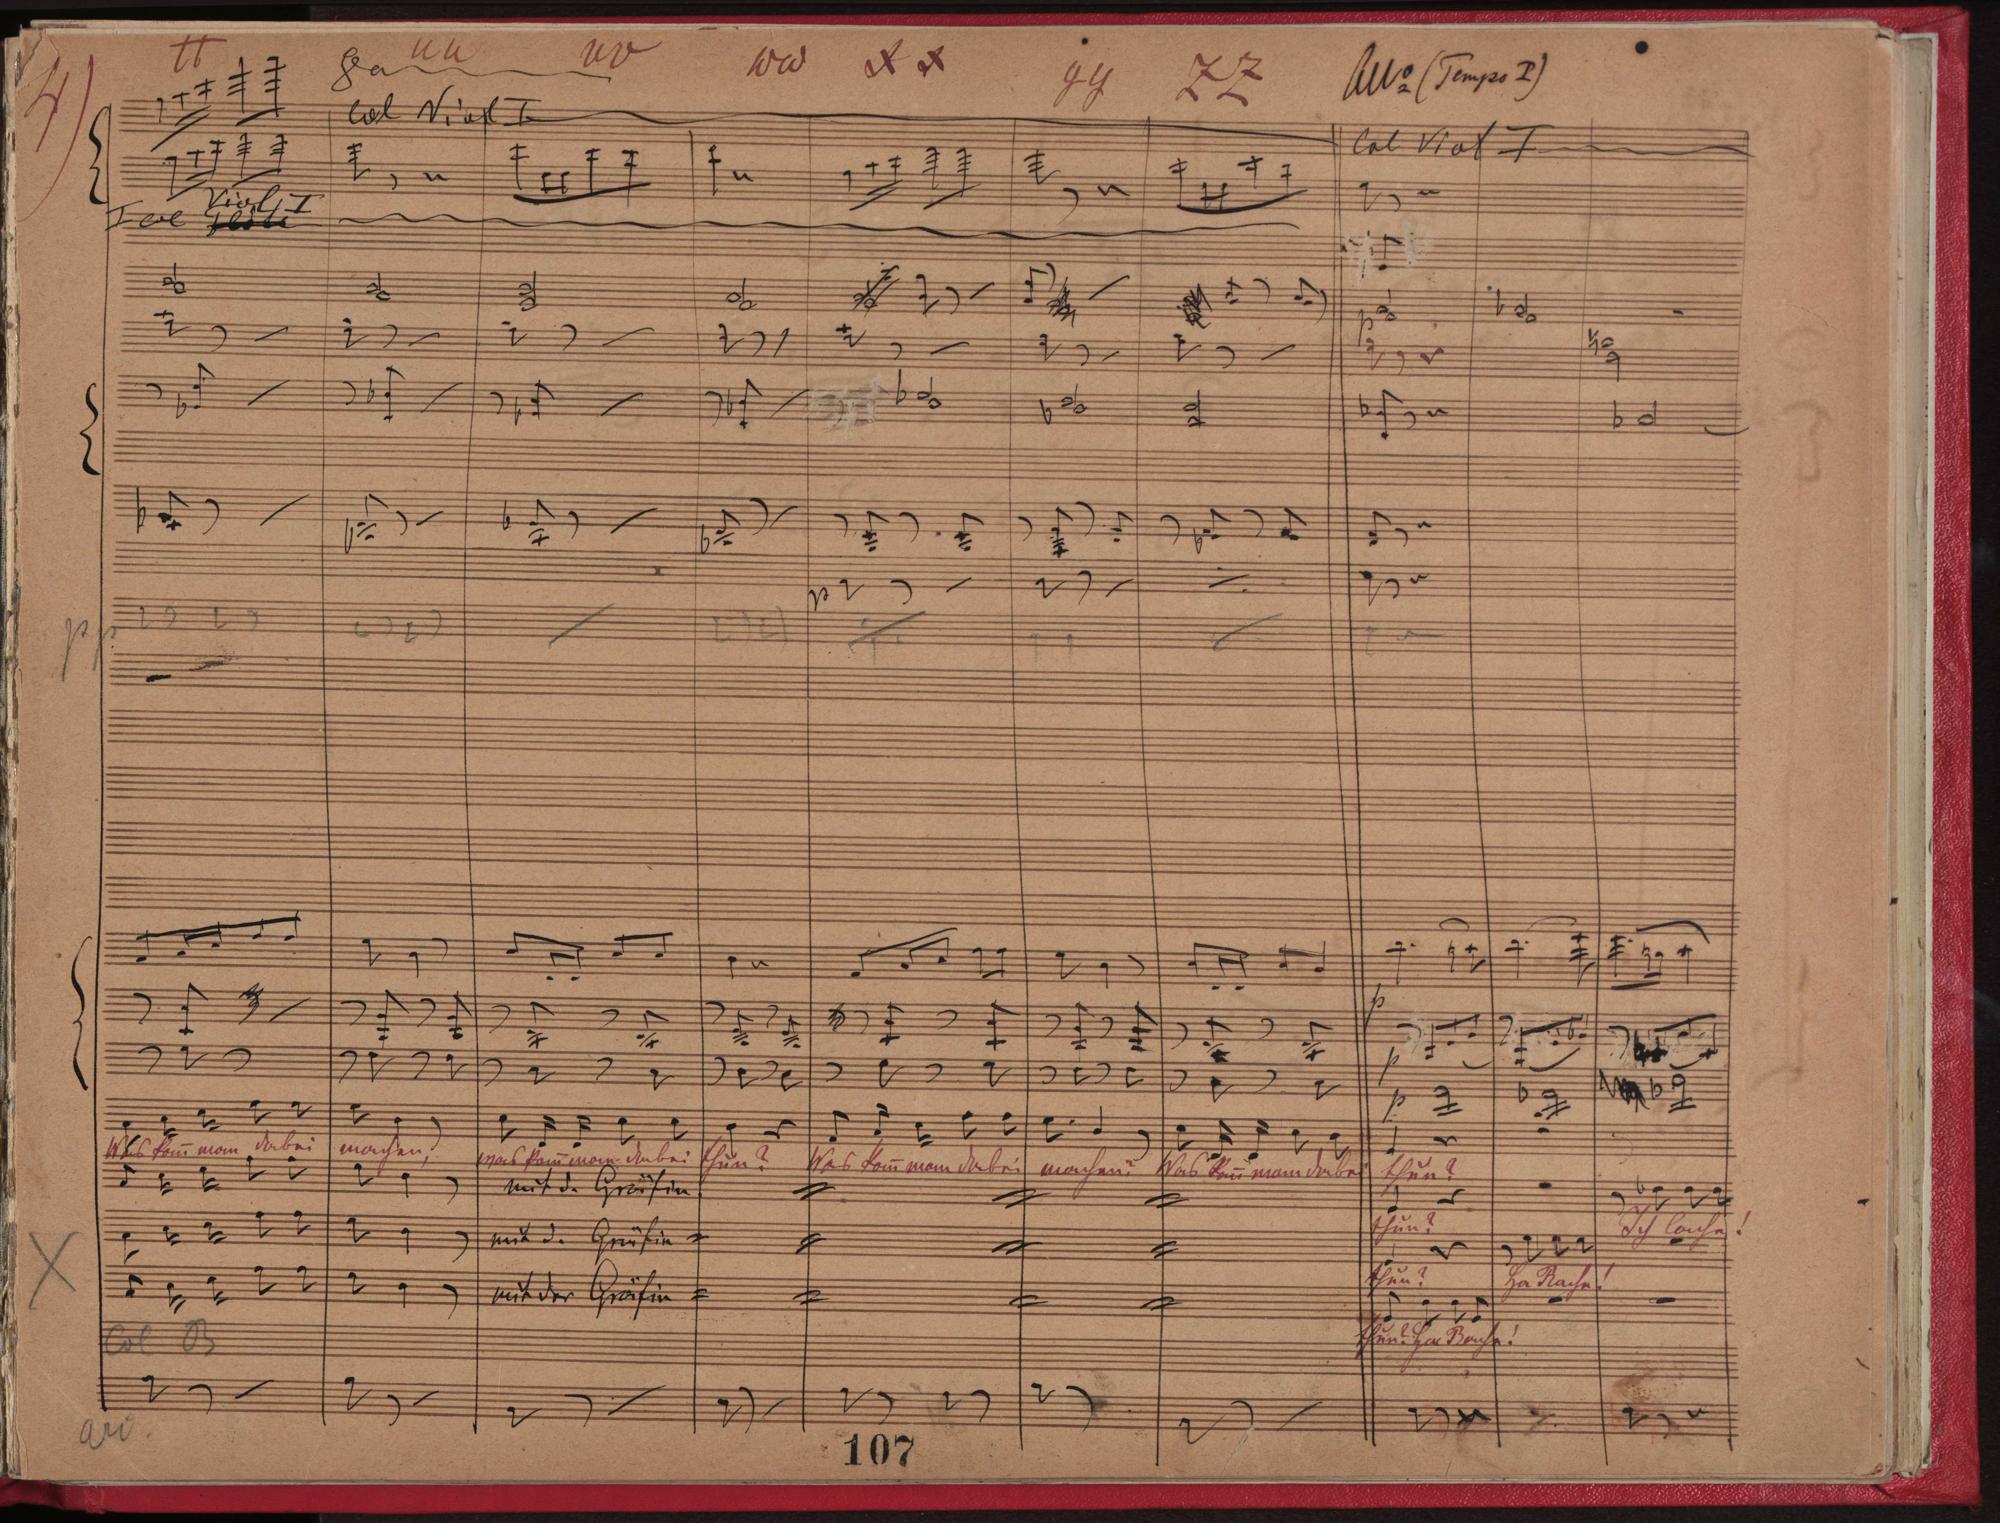 4)
tt uu vv ww xx yy zz Allo (Tempo I)
8va
Col Viol I
Col Viol I
Viol I
I col
p
p
pp
p
p
p
Was kom̄ man dabei machen, was kom̄ man dabei thun? Was kom̄ man dabei machen? Was kom̄ man dabei thun?
mit d. Gräfin
thun? Ich lache!
mit d. Gräfin
thun? Ha Rache!
X
mit der Gräfin
thun? Ha Rache!
Col B
107